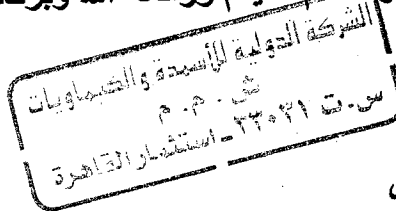 الشركة الدولية للأسمدة والكيماويات
ش . م . م
س.ت ٢٢٠٣١ - استثمار القاهرة